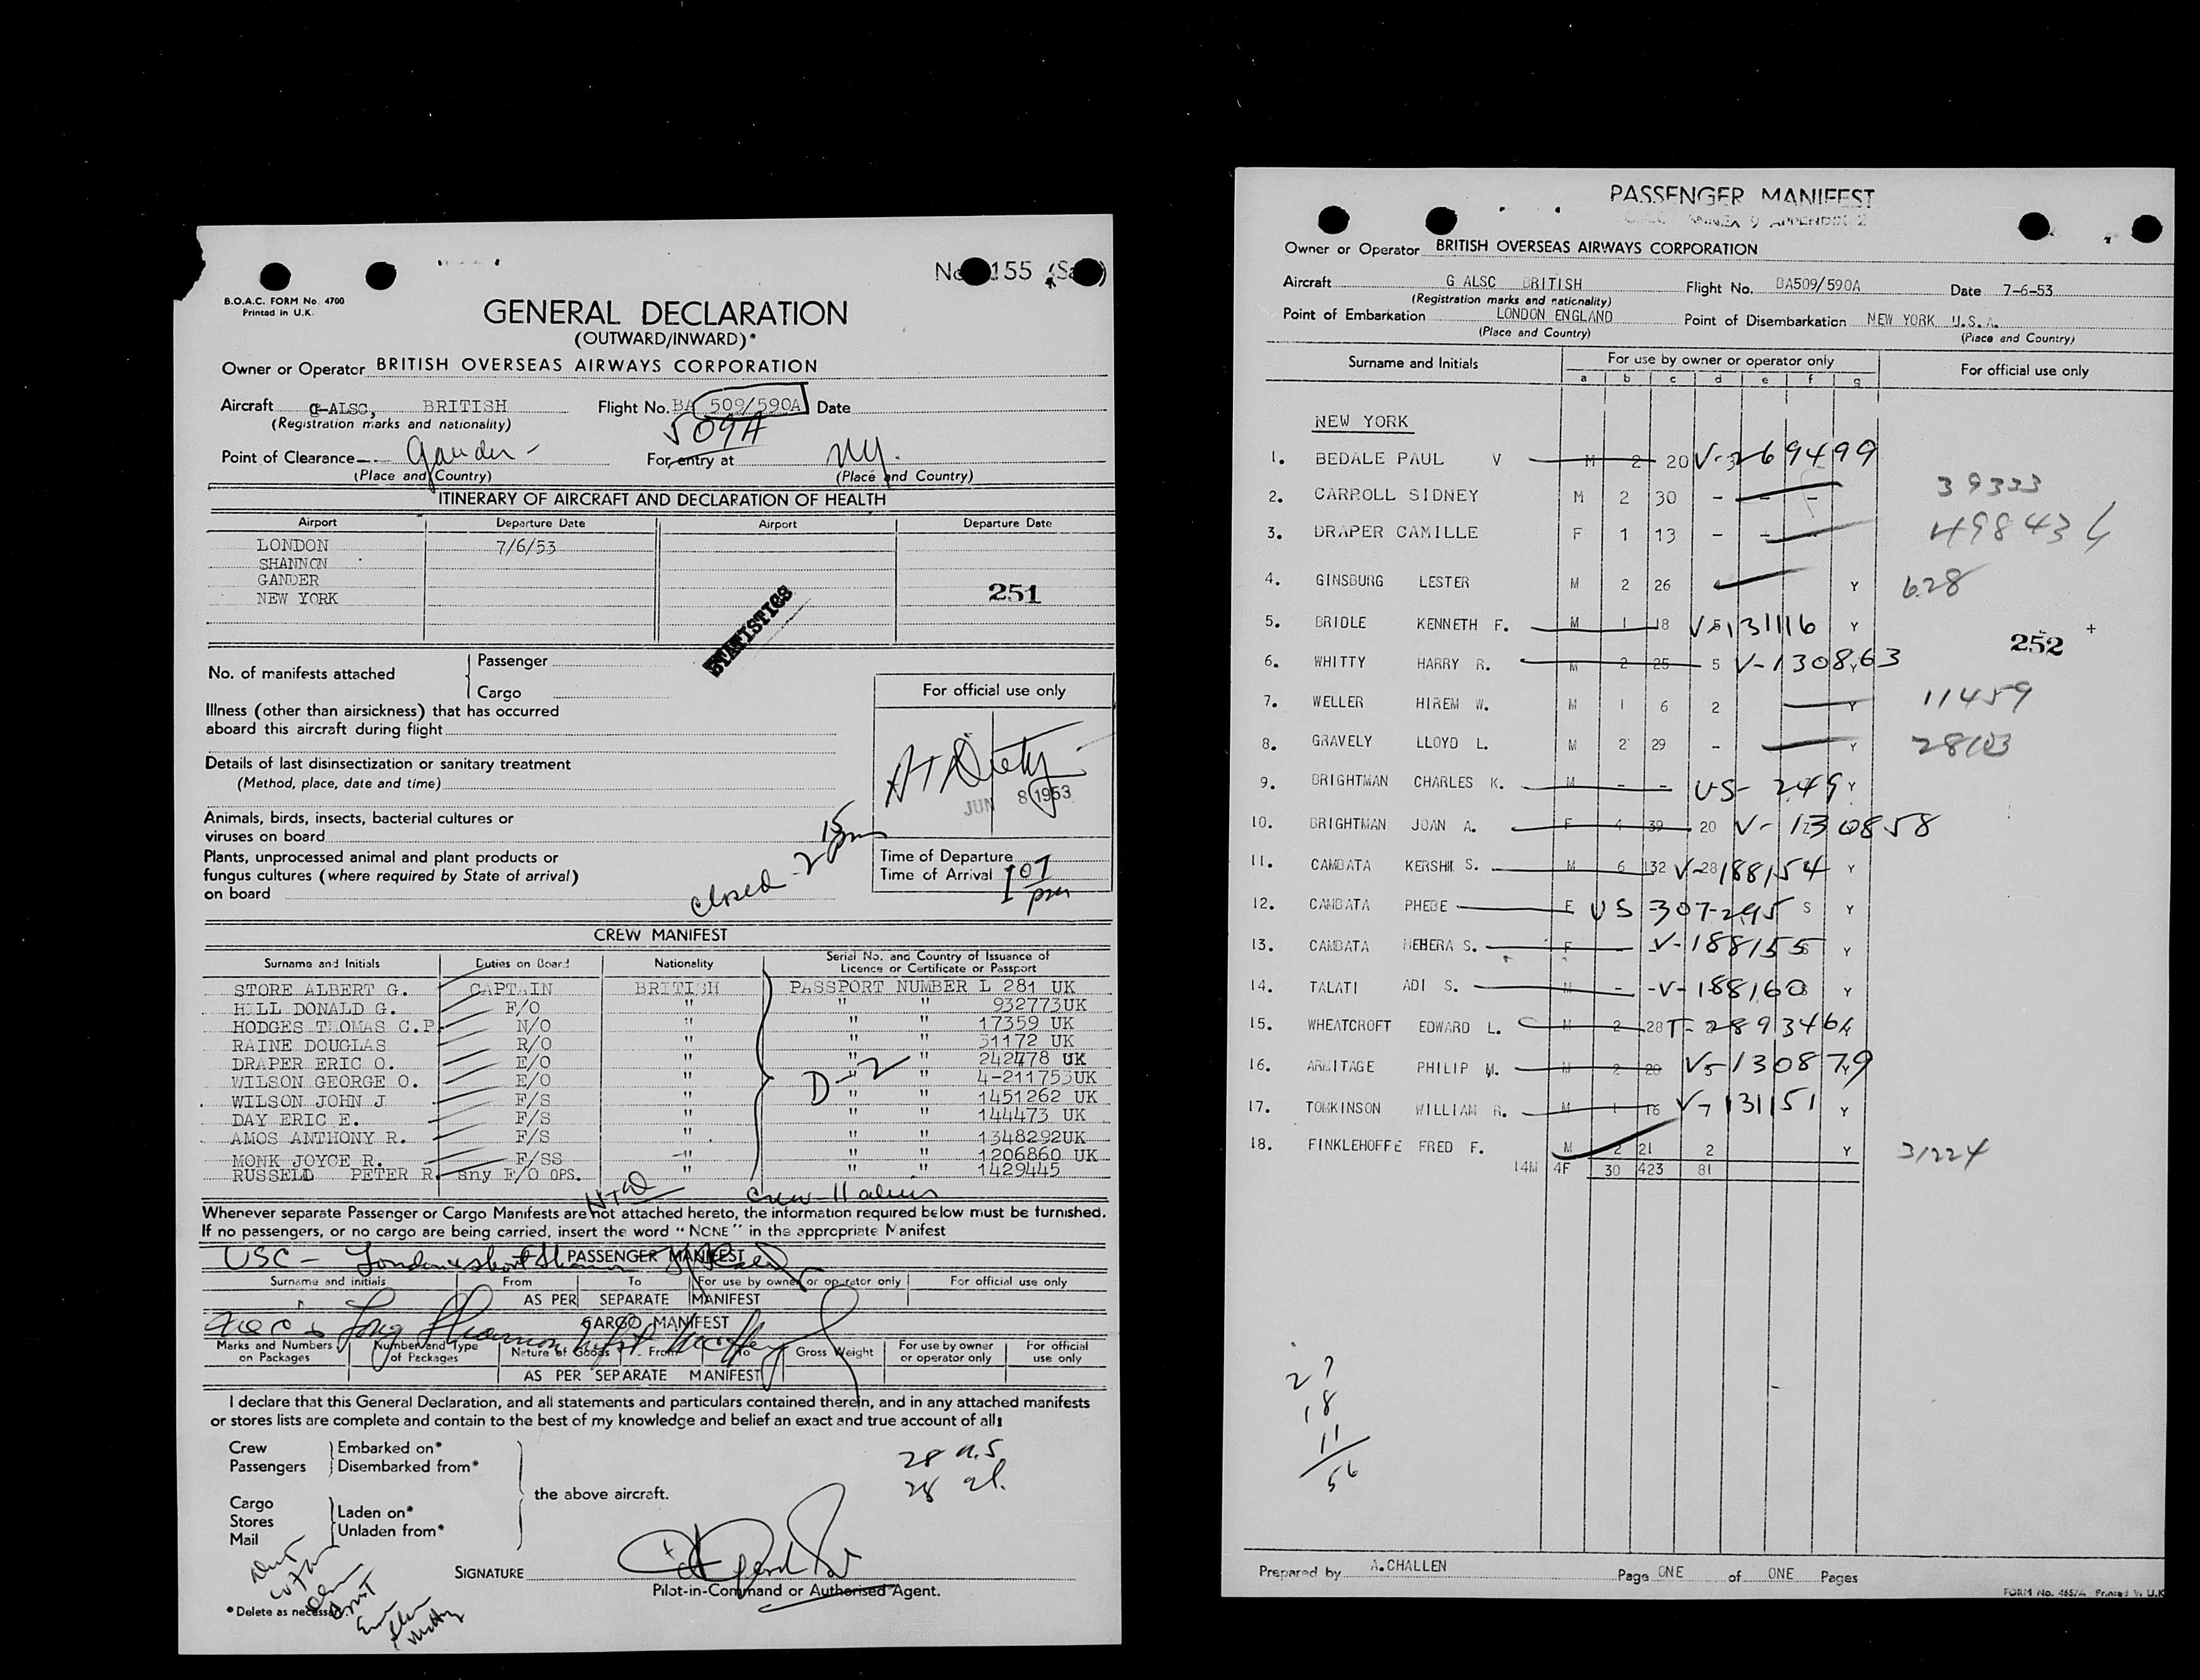 No 155 (Sa )
B.O.A.C. FORM No. 4700
Printed in U.K.
GENERAL DECLARATION
(OUTWARD/INWARD)*
Owner or Operator BRITISH OVERSEAS AIRWAYS CORPORATION
Aircraft G-ALSC, BRITISH Flight No. BA 509/590A Date
(Registration marks and nationality) 509A
Point of Clearance Gander - For entry at NY.
(Place and Country) (Place and Country)
ITINERARY OF AIRCRAFT AND DECLARATION OF HEALTH
Airport Departure Date Airport Departure Date
LONDON 7/6/53
SHANNON
GANDER
NEW YORK 251
STATISTICS
No. of manifests attached Passenger
Cargo
For official use only
Illness (other than airsickness) that has occurred
aboard this aircraft during flight
Details of last disinsectization or sanitary treatment
(Method, place, date and time)
JUN 8 1953
Animals, birds, insects, bacterial cultures or
viruses on board
Plants, unprocessed animal and plant products or
fungus cultures (where required by State of arrival)
on board
closed - 2 15 pm
Time of Departure
Time of Arrival 1 07 pm
CREW MANIFEST
Surname and Initials Duties on Board Nationality Serial No. and Country of Issuance of
Licence or Certificate or Passport
STORE ALBERT G. CAPTAIN BRITISH PASSPORT NUMBER L 281 UK
HILL DONALD G. F/O " " " 932773UK
HODGES THOMAS C.P. N/O " " " 17359 UK
RAINE DOUGLAS R/O " " " 31172 UK
DRAPER ERIC O. E/O " " " 242478 UK
WILSON GEORGE O. E/O " " " 4-211753UK
WILSON JOHN J F/S " " " 1451262 UK
DAY ERIC E. F/S " " " 144473 UK
AMOS ANTHONY R. F/S " " " 1348292UK
MONK JOYCE R. F/SS " " " 1206860 UK
RUSSELL PETER R. sny F/O OPS. " " " 1429445
D-2
Crew - 11 aliens
Whenever separate Passenger or Cargo Manifests are not attached hereto, the information required below must be furnished.
If no passengers, or no cargo are being carried, insert the word "NONE" in the appropriate Manifest
USC -
PASSENGER MANIFEST
Surname and initials From To For use by owner or operator only For official use only
AS PER SEPARATE MANIFEST
CARGO MANIFEST
Marks and Numbers on Packages Number and Type of Packages Nature of Goods From To Gross Weight For use by owner or operator only For official use only
AS PER SEPARATE MANIFEST
I declare that this General Declaration, and all statements and particulars contained therein, and in any attached manifests
or stores lists are complete and contain to the best of my knowledge and belief an exact and true account of all:
Crew Embarked on*
Passengers Disembarked from*
the above aircraft.
Cargo
Stores Laden on*
Mail Unladen from*
28 U.S
28 al.
SIGNATURE
Pilot-in-Command or Authorised Agent.
* Delete as necessary.
PASSENGER MANIFEST
ANNEX 9 APPENDIX 2
Owner or Operator BRITISH OVERSEAS AIRWAYS CORPORATION
Aircraft G ALSC BRITISH Flight No. BA509/590A Date 7-6-53
(Registration marks and nationality)
Point of Embarkation LONDON ENGLAND Point of Disembarkation NEW YORK U.S.A.
(Place and Country) (Place and Country)
Surname and Initials For use by owner or operator only For official use only
a b c d e f g
NEW YORK
1. BEDALE PAUL V M 2 20 3 V-269499
2. CARROLL SIDNEY M 2 30 - - - 39333
3. DRAPER CAMILLE F 1 13 - - - 498434
4. GINSBURG LESTER M 2 26 Y 628
5. BRIDLE KENNETH F. M 1 18 5 V-131116 Y
252
6. WHITTY HARRY R. M 2 25 5 V-130863 Y
7. WELLER HIREM W. M 1 6 2 Y 11459
8. GRAVELY LLOYD L. M 2 29 - Y 28103
9. BRIGHTMAN CHARLES K. M - - US- 249 Y
10. BRIGHTMAN JOAN A. F 4 39 20 V-130858
11. CAMBATA KERSHI S. M 6 132 28 V-188154 Y
12. CAMBATA PHEBE F US-307-295 S Y
13. CAMBATA MEHERA S. F - V-188155 Y
14. TALATI ADI S. M - - V-188160 Y
15. WHEATCROFT EDWARD L. M 2 28 T-2893464
16. ARMITAGE PHILIP M. M 2 20 5 V-130879 Y
17. TOMKINSON WILLIAM R. M 1 16 7 V-131151 Y
18. FINKLEHOFFE FRED F. M 2 21 2 Y 31224
14M 4F 30 423 81
27
18
11
56
Prepared by A.CHALLEN Page ONE of ONE Pages
FORM No. 4657A Printed in U.K